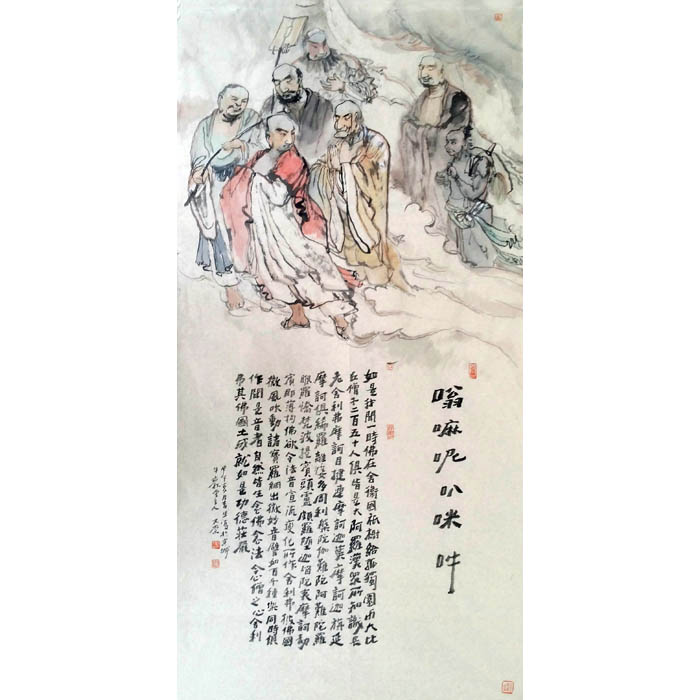 嗡嘛呢叭咪吽
如是我聞一時佛在舍衛國祇樹給孤獨園與大比
丘僧千二百五十人俱皆是大阿羅漢眾所知識長
老舍利弗摩訶目犍連摩訶迦葉摩訶迦旃延
摩訶俱絺羅離婆多周利槃陀伽難陀阿難陀羅
睺羅憍梵波提賓頭盧頗羅墮迦留陀夷摩訶劫
賓那薄拘佛欲令法音宣流變化所作舍利弗彼佛國
微風吹動諸寶羅網出微妙音譬如百千種樂同時俱
作聞是音者自然皆生念佛念法念僧之心舍利
弗其佛國土成就如是功德莊嚴